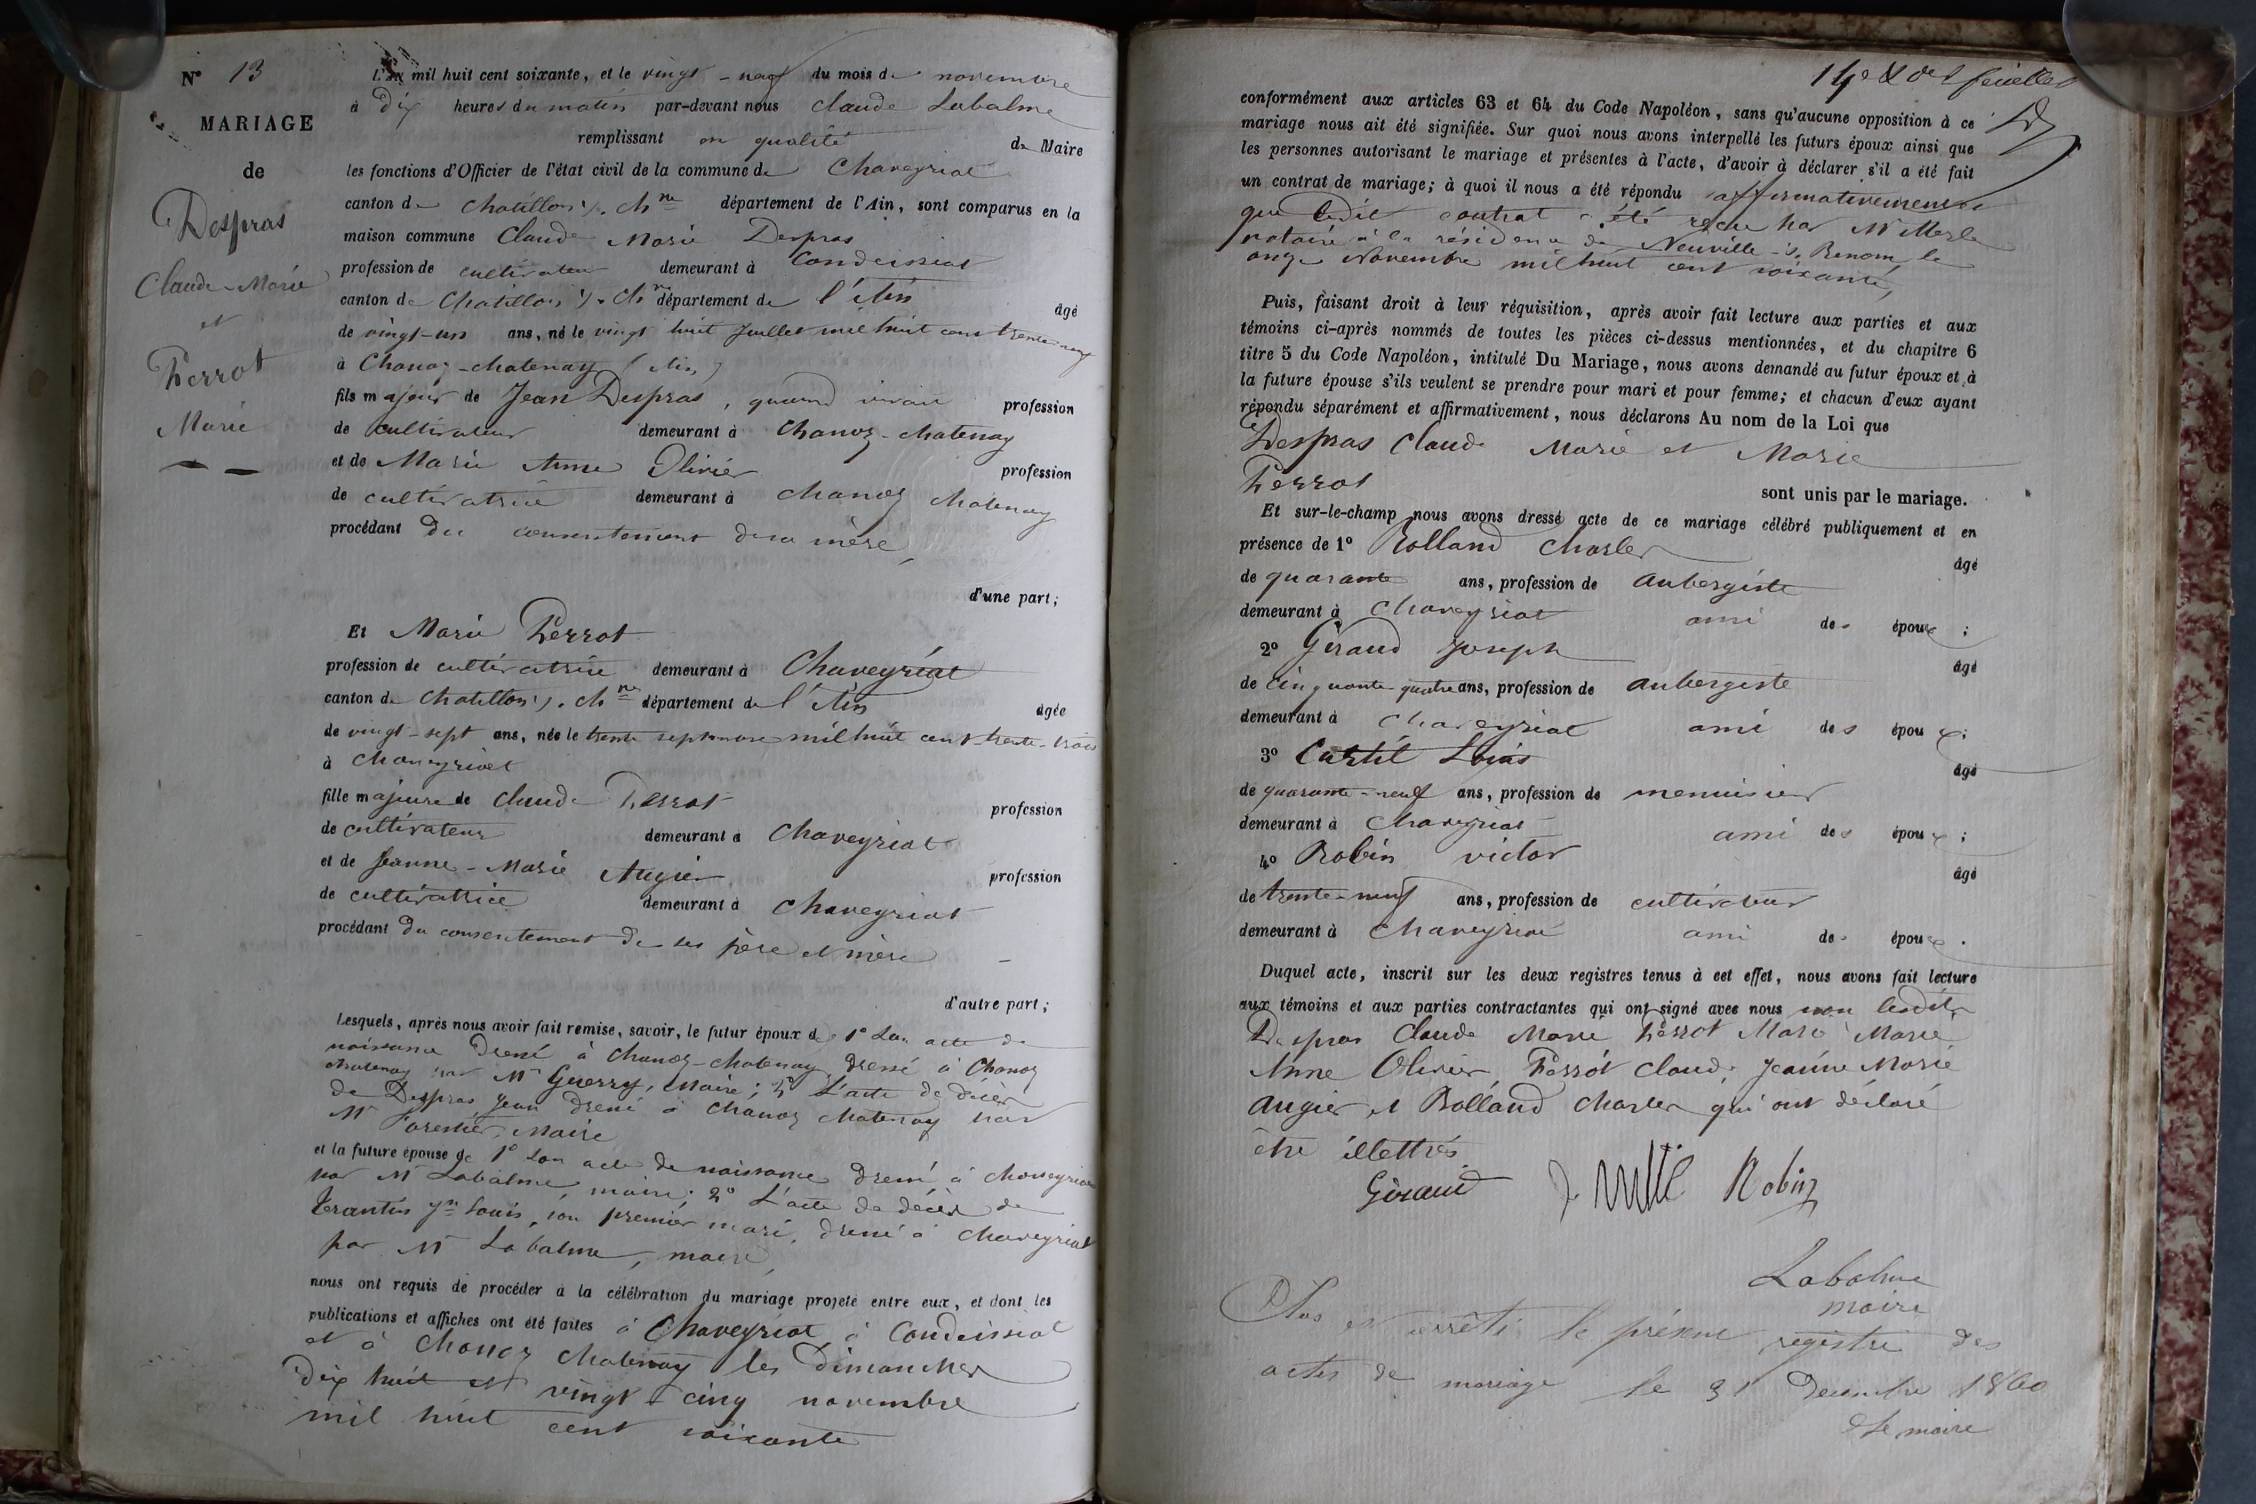 N° 13
MARIAGE
de
Despras
Claude-Marie
et
Perrot
Marie
L'an mil huit cent soixante, et le vingt-neuf du mois de novembre
à dix heures du matin par-devant nous Claude Labalme
remplissant en qualité de Maire
les fonctions d'Officier de l'état civil de la commune de Chaveyriat
canton de Chatillon s. Chne département de l'Ain, sont comparus en la
maison commune Claude Marie Despras
profession de cultivateur demeurant à Condeissiat
canton de Chatillon s. Chne département de l'Ain âgé
de vingt-un ans, né le vingt huit Juillet mil huit cent trente neuf
à Chanoz-chatenay (Ain)
fils majeur de Jean Despras, quand vivait profession
de cultivateur demeurant à Chanoz-chatenay
et de Marie Anne Olivier profession
de cultivatrice demeurant à Chanoz chatenay
procédant du consentement de sa mère,
d'une part;
Et Marie Perrot
profession de cultivatrice demeurant à Chaveyriat
canton de Chatillon s. Chne département de l'Ain âgée
de vingt-sept ans, née le trente septembre mil huit cent trente-trois
à Chaveyriat
fille majeure de Claude Perrot profession
de cultivateur demeurant à Chaveyriat
et de Jeanne-Marie Augier profession
de cultivatrice demeurant à Chaveyriat
procédant du consentement de ses père et mère
d'autre part;
Lesquels, après nous avoir fait remise, savoir, le futur époux de 1° Son acte de
naissance dressé à Chanoz-chatenay dressé à Chanoz
chatenay par Mr Guerry, Maire; 2° L'acte de décès
de Despras Jean dressé à Chanoz chatenay par
Mr Forestier, Maire
et la future épouse de 1° Son acte de naissance dressé à Chaveyriat
par Mr Labalme, maire; 2° L'acte de décès de
Louis, son premier mari, dressé à Chaveyriat
par Mr Labalme, maire,
nous ont requis de procéder à la célébration du mariage projeté entre eux, et dont les
publications et affiches ont été faites à Chaveyriat, à Condeissiat
et à Chanoz chatenay les Dimanches
dix huit et vingt-cinq novembre
mil huit cent soixante
14e & der feuillet
conformément aux articles 63 et 64 du Code Napoléon, sans qu'aucune opposition à ce
mariage nous ait été signifiée. Sur quoi nous avons interpellé les futurs époux ainsi que
les personnes autorisant le mariage et présentes à l'acte, d'avoir à déclarer s'il a été fait
un contrat de mariage; à quoi il nous a été répondu affirmativement
que ledit contrat a été reçu par Mr Merle
notaire à la résidence de Neuville-s. Renom, le
onze Novembre mil huit cent soixante,
Puis, faisant droit à leur réquisition, après avoir fait lecture aux parties et aux
témoins ci-après nommés de toutes les pièces ci-dessus mentionnées, et du chapitre 6
titre 5 du Code Napoléon, intitulé Du Mariage, nous avons demandé au futur époux et à
la future épouse s'ils veulent se prendre pour mari et pour femme; et chacun d'eux ayant
répondu séparément et affirmativement, nous déclarons Au nom de la Loi que
Despras Claude Marie et Marie
Perrot
sont unis par le mariage.
Et sur-le-champ nous avons dressé acte de ce mariage célébré publiquement et en
présence de 1° Rolland Charles âgé
de quarante ans, profession de aubergiste
demeurant à Chaveyriat ami des époux;
2° Giraud Joseph âgé
de cinquante quatre ans, profession de aubergiste
demeurant à Chaveyriat ami des époux;
3° Curtil Louis âgé
de quarante-neuf ans, profession de menuisier
demeurant à Chaveyriat ami des époux;
4° Robin victor âgé
de trente-neuf ans, profession de cultivateur
demeurant à Chaveyriat ami des époux.
Duquel acte, inscrit sur les deux registres tenus à cet effet, nous avons fait lecture
aux témoins et aux parties contractantes qui ont signé avec nous non lesdits
Despras Claude Marie Perrot Marie Marie
Anne Olivier, Perrot Claude, Jeanne Marie
Augier et Rolland Charles qui ont déclaré
être illettrés.
Giraud Robin
Labalme
maire
Clos et arrêté le présent registre des
actes de mariage le 31 Decembre 1860
Le maire